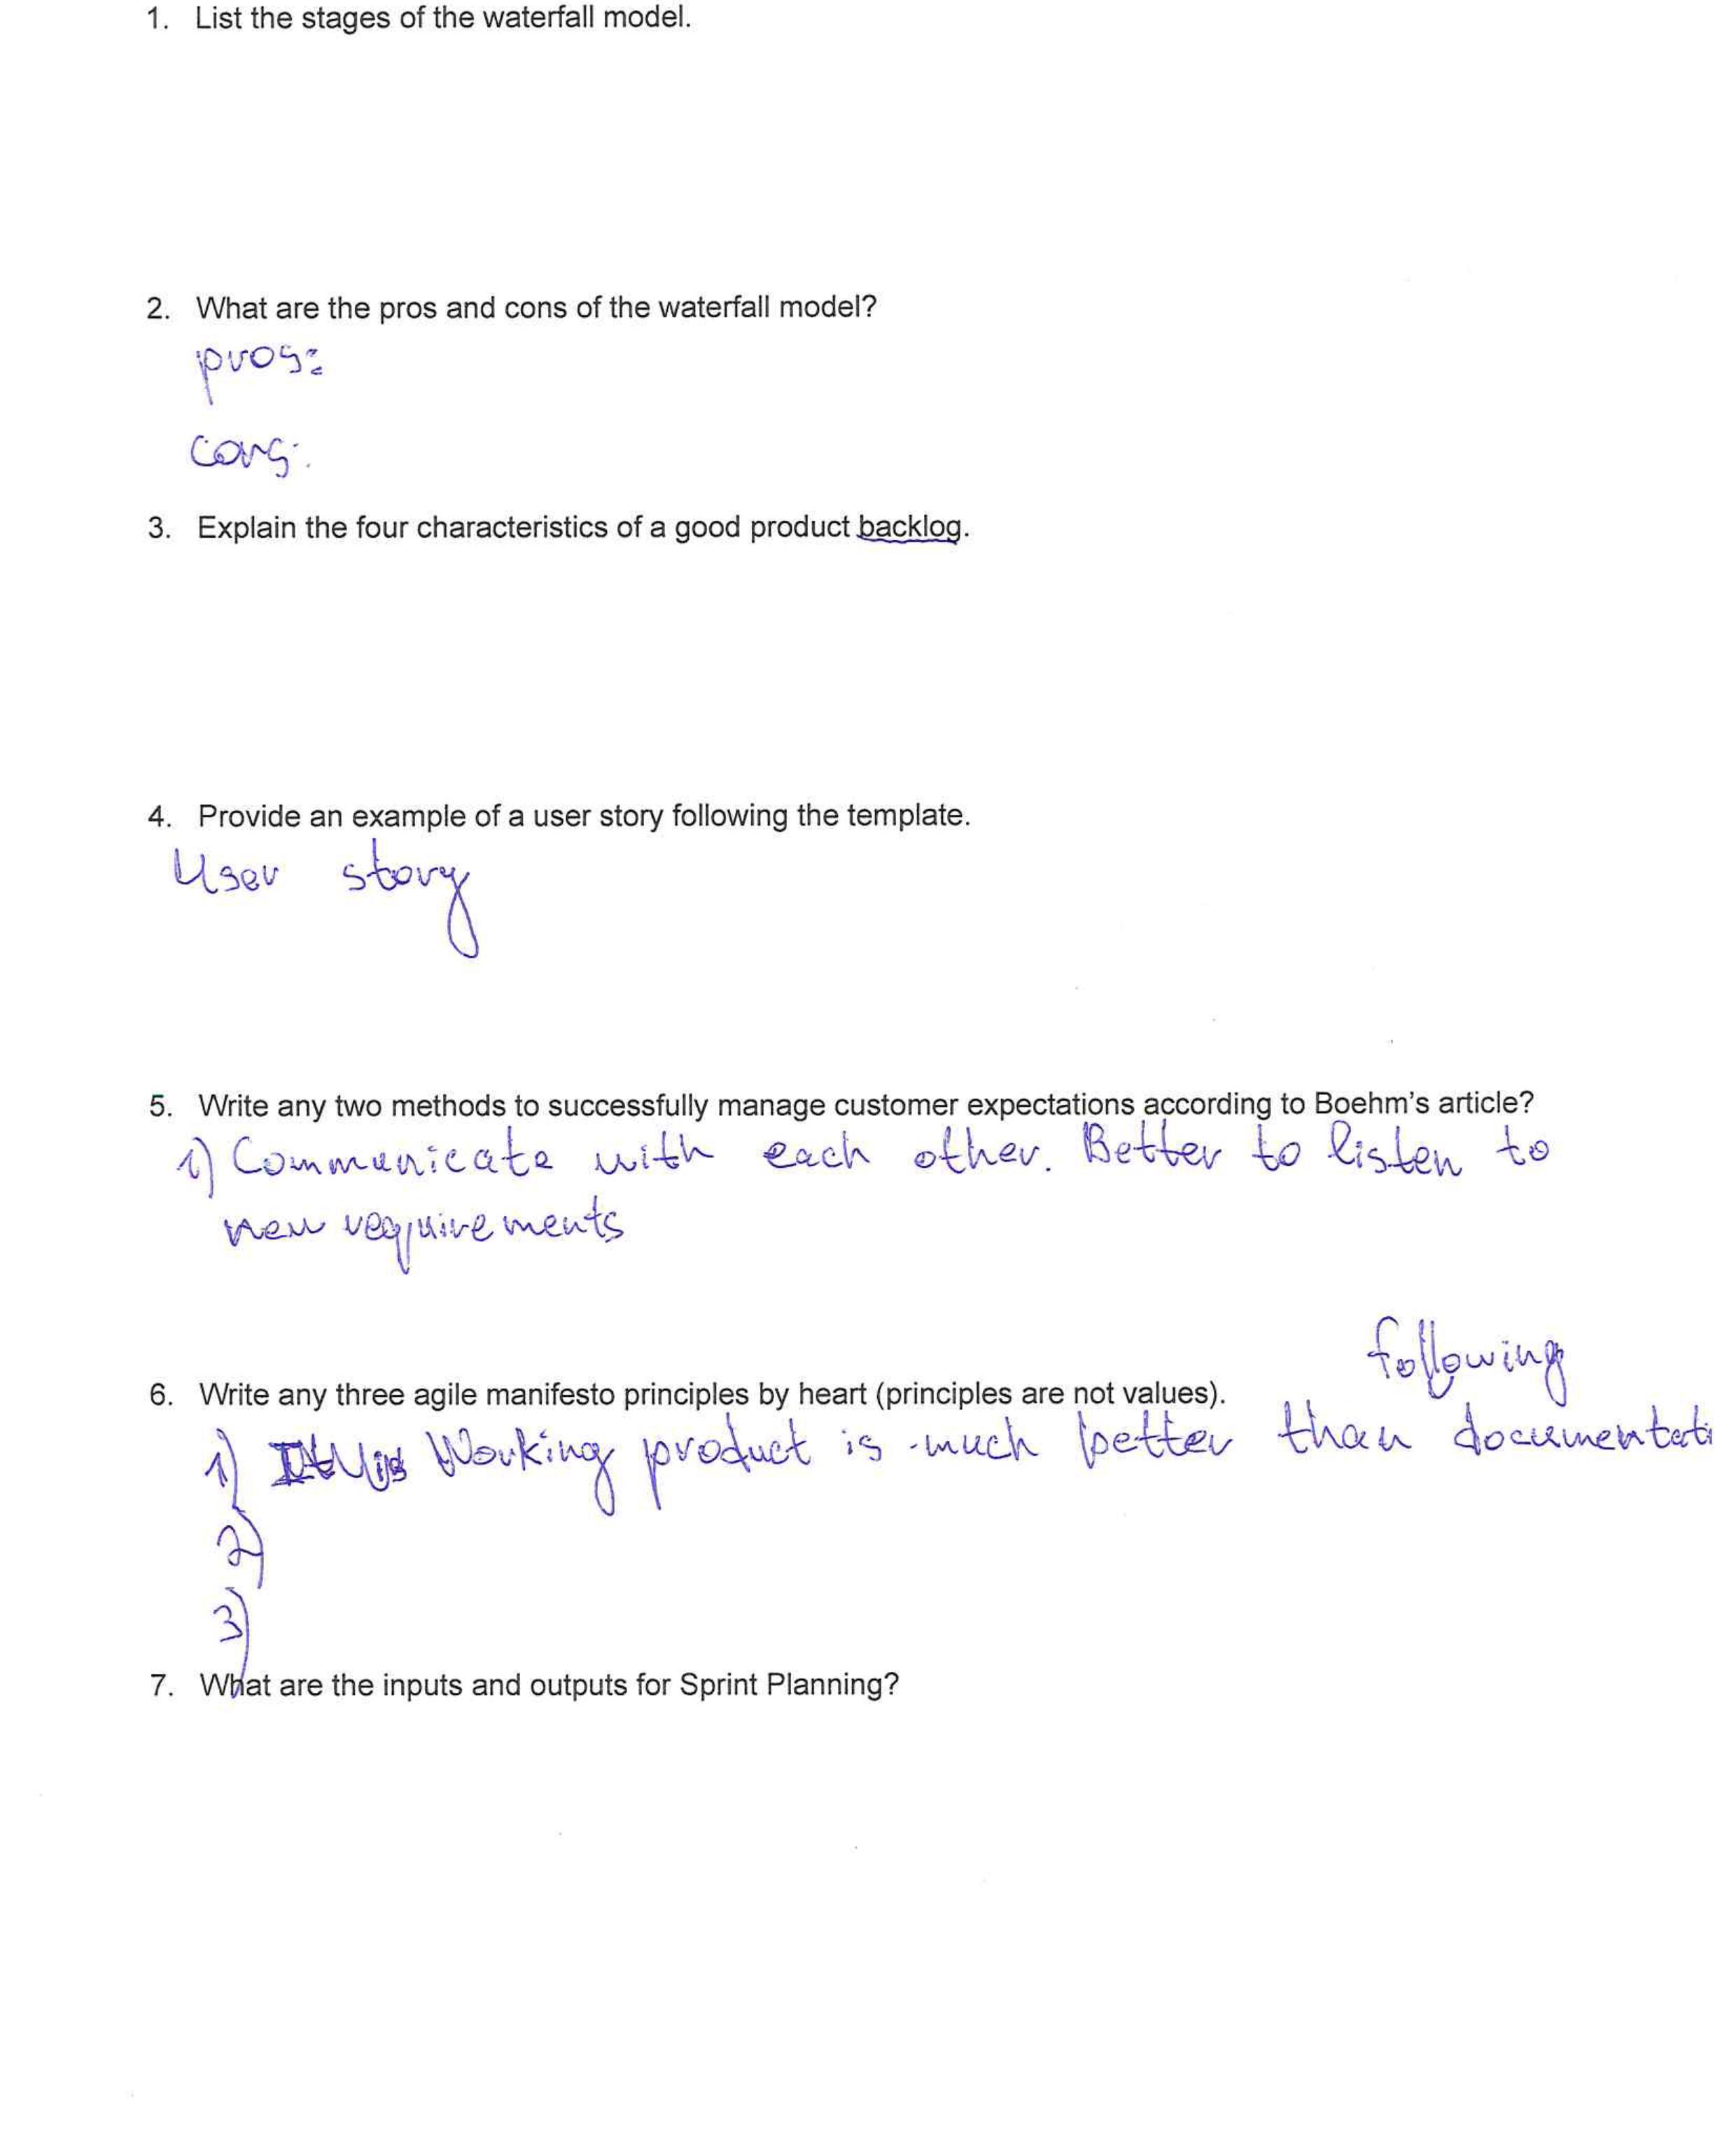 1. List the stages of the waterfall model.
2. What are the pros and cons of the waterfall model?
pros:
cons:
3. Explain the four characteristics of a good product backlog.
4. Provide an example of a user story following the template.
User story
5. Write any two methods to successfully manage customer expectations according to Boehm's article?
1) Communicate with each other. Better to listen to
new requirements
following
6. Write any three agile manifesto principles by heart (principles are not values).
1) Working product is much better than documentati
2)
3)
7. What are the inputs and outputs for Sprint Planning?